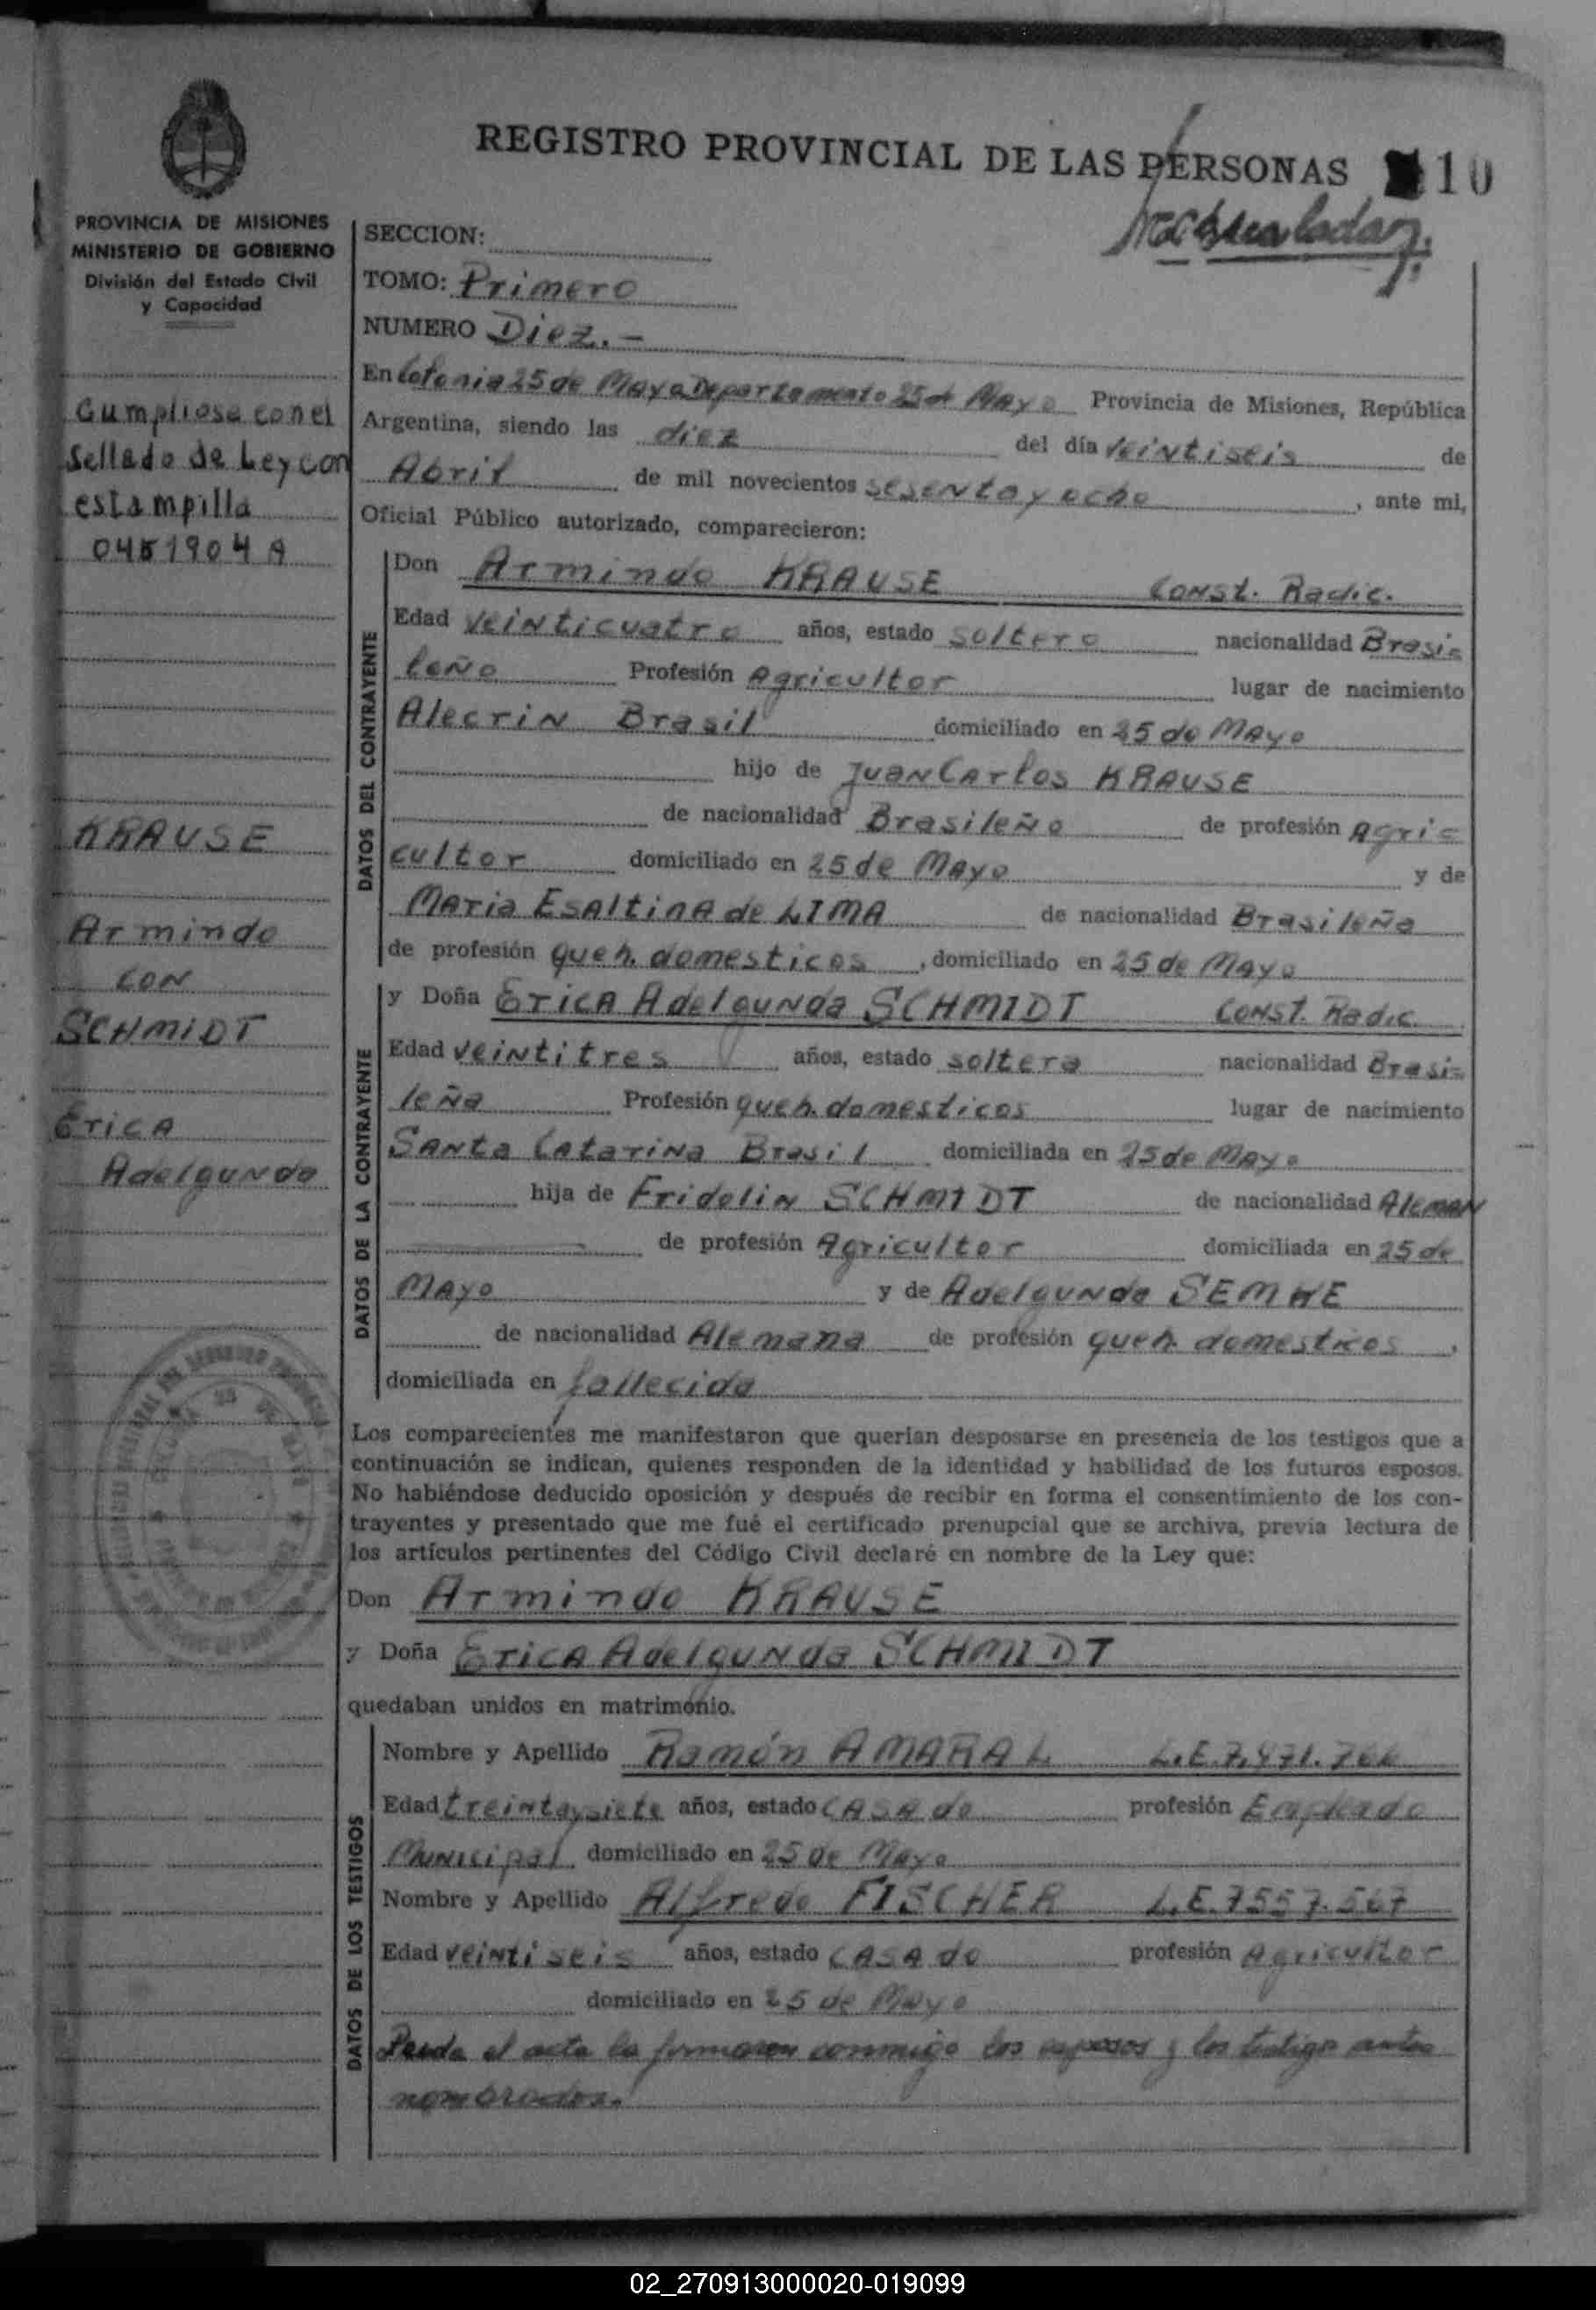 REGISTRO PROVINCIAL DE LAS PERSONAS 10
PROVINCIA DE MISIONES
MINISTERIO DE GOBIERNO
División del Estado Civil
y Capacidad
Cumpliose con el
Sellado de Ley con
estampilla
0451904 A
KRAUSE
Armindo
CON
SCHMIDT
Erica
Adelgunda
SECCION:
TOMO: Primero
NUMERO Diez.-
En Colonia 25 de Mayo Departamento 25 de Mayo Provincia de Misiones, República
Argentina, siendo las diez del día veintiseis de
Abril de mil novecientos sesenta y ocho, ante mi,
Oficial Público autorizado, comparecieron:
DATOS DEL CONTRAYENTE
Don Armindo KRAUSE Const. Radic.
Edad veinticuatro años, estado soltero nacionalidad Brasi=
leño Profesión Agricultor lugar de nacimiento
Alecrin Brasil domiciliado en 25 de Mayo
hijo de Juan Carlos KRAUSE
de nacionalidad Brasileño de profesión Agri=
cultor domiciliado en 25 de Mayo y de
Maria Esaltina de LIMA de nacionalidad Brasileña
de profesión queh. domesticos, domiciliado en 25 de Mayo
DATOS DE LA CONTRAYENTE
y Doña Erica Adelgunda SCHMIDT Const. Radic.
Edad veintitres años, estado soltera nacionalidad Brasi=
leña Profesión queh. domesticos lugar de nacimiento
Santa Catarina Brasil domiciliada en 25 de Mayo
hija de Fridolin SCHMIDT de nacionalidad Aleman
de profesión Agricultor domiciliada en 25 de
Mayo y de Adelgunda SEMKE
de nacionalidad Alemana de profesión queh. domesticos,
domiciliada en fallecida
Los comparecientes me manifestaron que querían desposarse en presencia de los testigos que a
continuación se indican, quienes responden de la identidad y habilidad de los futuros esposos.
No habiéndose deducido oposición y después de recibir en forma el consentimiento de los con-
trayentes y presentado que me fué el certificado prenupcial que se archiva, previa lectura de
los artículos pertinentes del Código Civil declaré en nombre de la Ley que:
Don Armindo KRAUSE
y Doña Erica Adelgunda SCHMIDT
quedaban unidos en matrimonio.
DATOS DE LOS TESTIGOS
Nombre y Apellido Ramón AMARAL L.E.7.471.
Edad treinta y siete años, estado casado profesión Empleado
Municipal domiciliado en 25 de Mayo
Nombre y Apellido Alfredo FISCHER L.E.7557.567
Edad veintiseis años, estado casado profesión Agricultor
domiciliado en 25 de Mayo
el acta la firmaron conmigo los esposos y los testigos antes
nombrados.
02_270913000020-019099